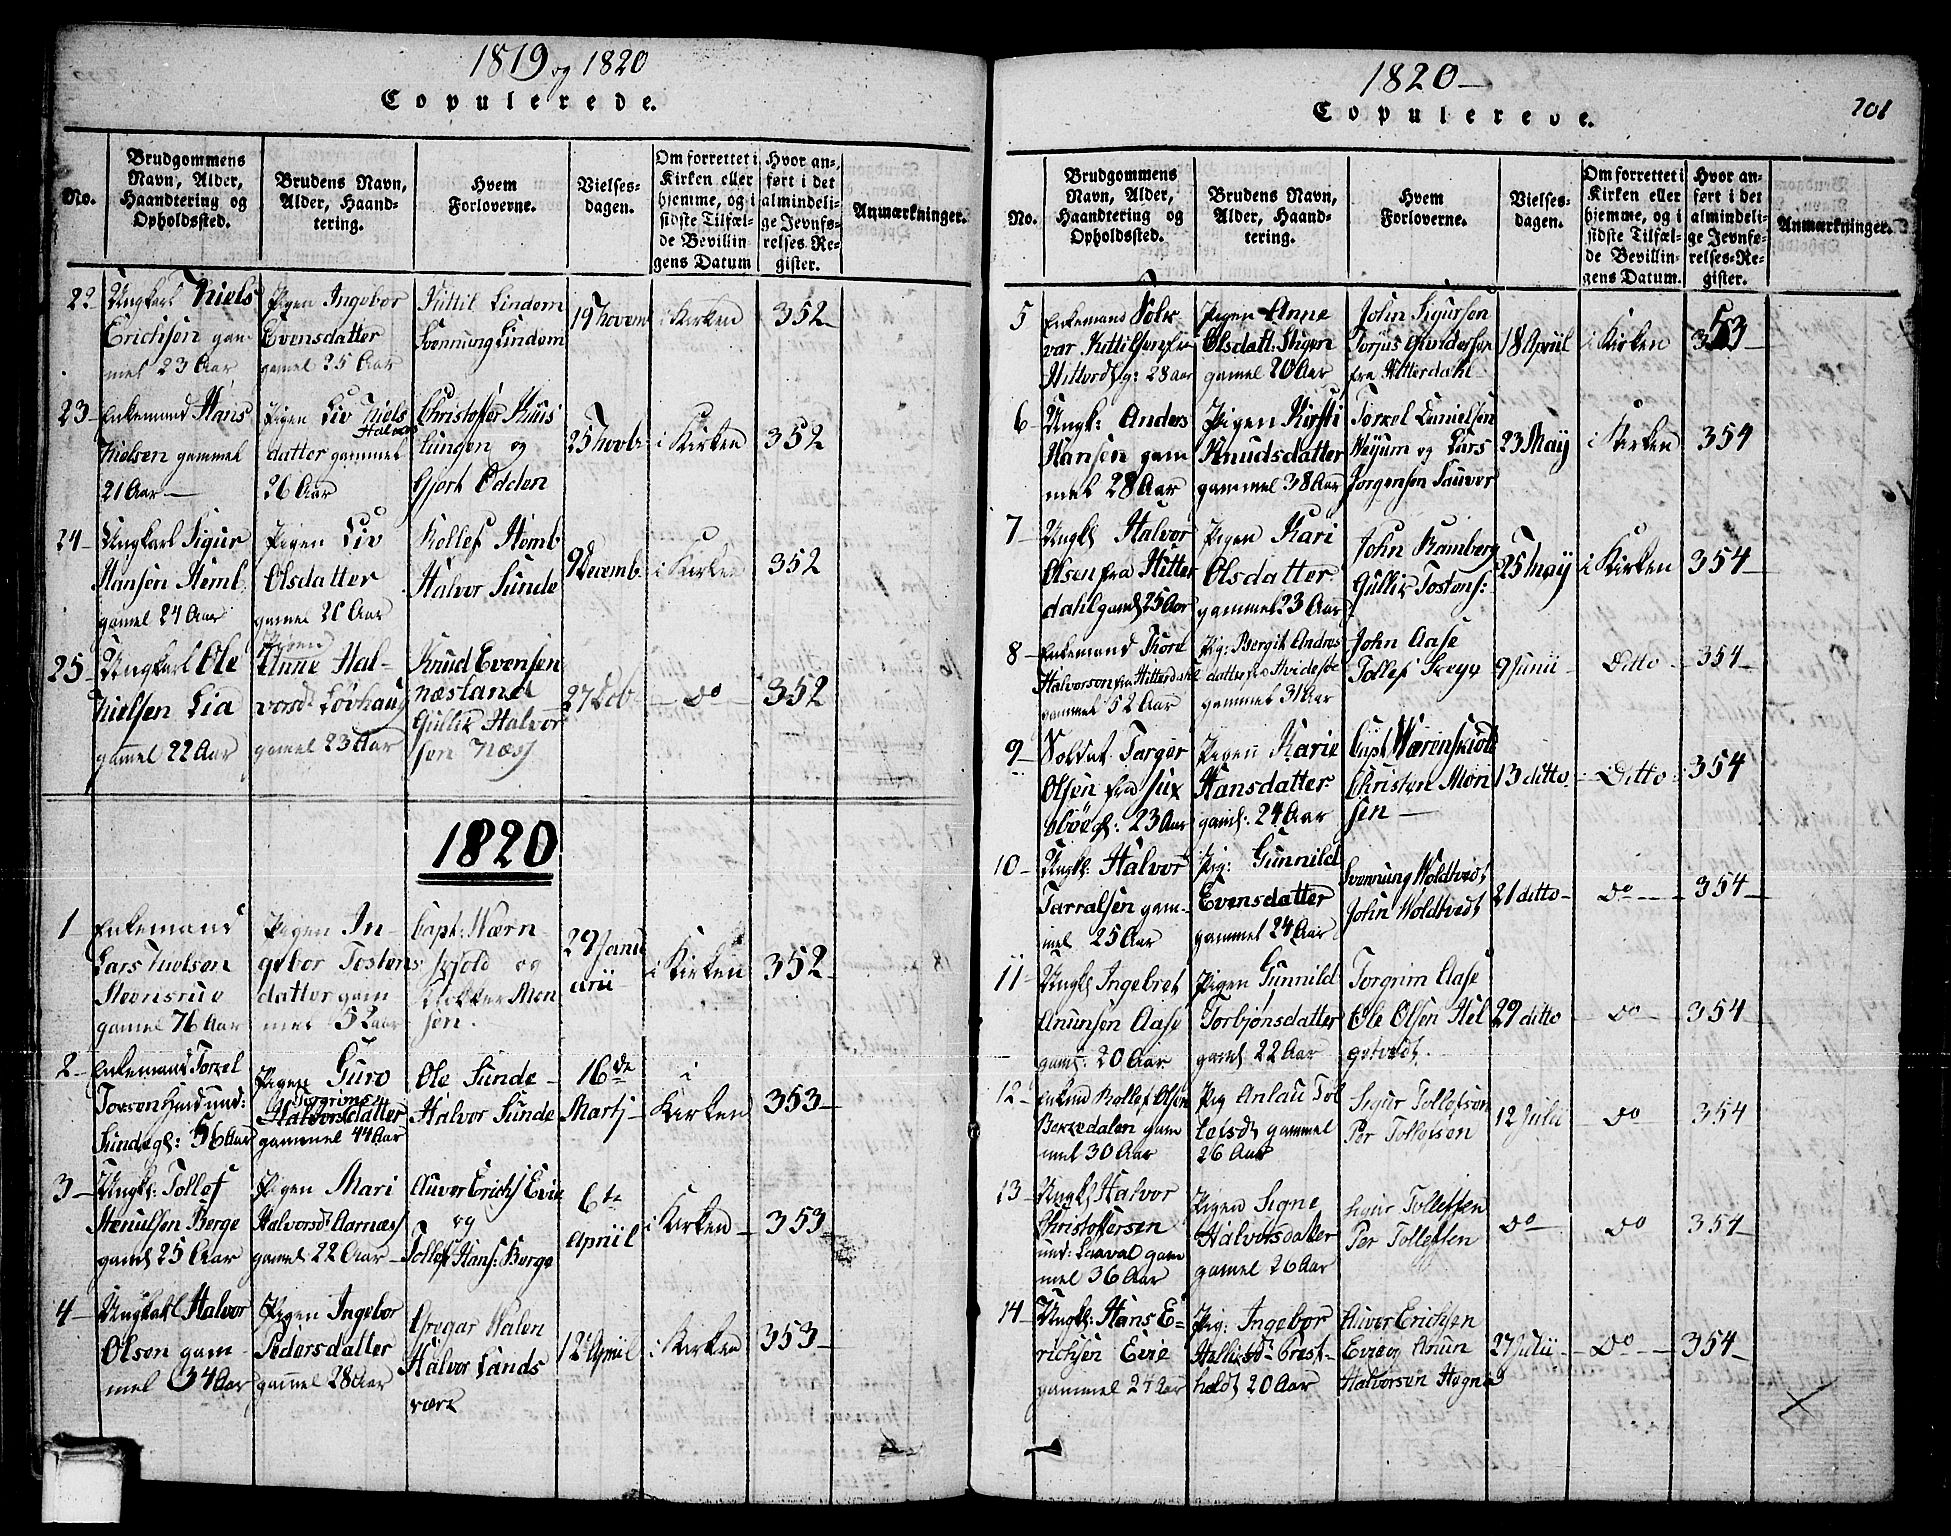 1819 og 1820
Copulerede.
No.
Brudgommens Navn, Alder, Haandtering og Opholdssted.
Brudens Navn, Alder, Haandtering.
Hvem Forloverne.
Vielsesdagen.
Om forrettet i Kirken eller hjemme, og i sidste Tilfælde Bevillingens Datum
Hvor anført i det almindelige Jevnførelses-Register.
Anmærkninger.
22
Ungkarl Niels
Erichsen gam-
mel 23 Aar
Pigen Ingebor
Evensdatter
gamel 25 Aar
Kittil Lindem
Svennung Lindem
19 Novem
i Kirken
352
23
Enkemand Hans
Nielsen gammel
21 Aar
Pigen Liv Niels
Halvors
datter gammel
26 Aar
Christoffer Kaas
lungen og
Gjert Odden
25 Novbr:
i Kirken
352
24
Ungkarl Sigur
Hansen Heml.
gamel 24 Aar
Pigen Liv
Olsdatter
gamel 21 Aar
Rollef Hemb
Halvor Sunde
9 Decemb.
i Kirken
352
25
Ungkarl Ole
Nielsen Lia
gammel 22 Aar
Pigen
Anne Hal-
vorsdt Løvhaug
gamel 23 Aar
Knud Evensen
næsland
Gullik Halvor
sen Næss
27 Decb
do
352
1820
1
Enkemand
Lars Nielsen
Steensrue
gamel 76 Aar
Pigen In-
gebor Tostens
datter gam
mel 52 aar
Capt: Wærn-
skjold og
Klokker Mon
sen.
29 Janu
arii
i Kirken
352
2
Enkemand Torkel
Sunde gl: 56 Aar
Pigen Guro
Torgrims
Halvorsdatter
gammel 44 Aar
Ole Sunde
Halvor Sunde
16de
Martj
i
Kirken
353
3
Ungkl: Tollef
Stenulsen Berge
gaml 25 Aar
Pigen Mari
Halvorsdt Aarnæs
gamel 22 Aar
Auver Erichs Evie
og
Tollef Hans: Berge
6te
Apriil
i Kirken
353
4
Ungkarl Halvor
Olsen gam-
mel 34 Aar
Pigen Ingebor
Pedersdatter
gammel 28 Aar
Gregar Halen
Halvor Lands
værk
12 Apriil
i Kirken
353
1820
Copulerede.
201
No.
Brudgommens Navn, Alder, Haandtering og Opholdssted.
Brudens Navn, Alder, Haandtering.
Hvem Forloverne.
Vielsesdagen.
Om forrettet i Kirken eller hjemme, og i sidste Tilfælde Bevillingens Datum.
Hvor anført i det almindelige Jevnførelses-Register.
Anmærkninger.
5
Enkemand Solv
var Kittilsen fra
Hitterd: g: 28 aar
Pigen Anne
Olsdatt: Stigen
gamel 20 Aar
John Sigursen
Torjus Gundersen
fra Hitterdahl
18 Apriil
i Kirken
353
6
Ungk: Anders
Hansen gam
mel 28 Aar
Pigen Kirsti
Knudsdatter
gammel 38 Aar
Torkel Danielsen
Weyum og Lars
Jorgensen Sauver
23 May
i Kirken
354
7
Ungkl Halvor
Olsen fra Hitter
dahl gaml 25 Aar
Pigen Kari
Olsdatter
gammel 23 Aar
John Ramberg
Gullik Tostens:
25 May
i Kirken
354
8
Enkemand Thore
Halvorsen fra Hitterdahl
gammel 52 Aar
Pig: Bergit Andres
datter fra Hvidesøe
gammel 31 Aar
John Aase
Tollef
9 Junii
Ditto
354
9
Soldat Targer
Olsen fra Jux
bøe gl: 23 Aar
Pigen Karie
Hansdatter
gaml: 24 Aar
Capt Wærenskiold
Christen Mon
sen
13 ditto
Ditto
354
10
Ungkl: Halvor
Tarralsen gam-
mel 25 Aar
Pig: Gunnild
Evensdatter
gammel 24 Aar
Svennung Woldtvedt
John Woldtvedt
21 ditto
Do
354
11
Ungkl Ingebret
Anunsen Aase
gaml: 20 Aar
Pigen Gunnild
Torbjønsdatter
gaml 22 Aar
Torgrim Aase
Ole Olsen Hel
getvedt.
29 ditto
Do
354
12
Enkmd Rollef Olsen
Bekkedalen gam
mel 30 Aar
Pig Anlau Tol
lefsdt gammel
26 Aar
Sigur Tollefsen
Per Tollefsen
12 Julii
Do
354
13
Ungkl Halvor
Christoffersen
und: Laaval gam
mel 36 Aar
Pigen Signe
Halvorsdatter
gamel 26 Aar
Sigur Tollefsen
Per Tollefsen
do
Do
354
14
Ungkl: Hans E=
richsen Evie
gammel 24 Aar
Pig: Ingebor
Hellicsdt Brest-
holdt 20 Aar
Auver Erichsen
Evie og Anun
Halvorsen Høgna
27 Julii
Do
354